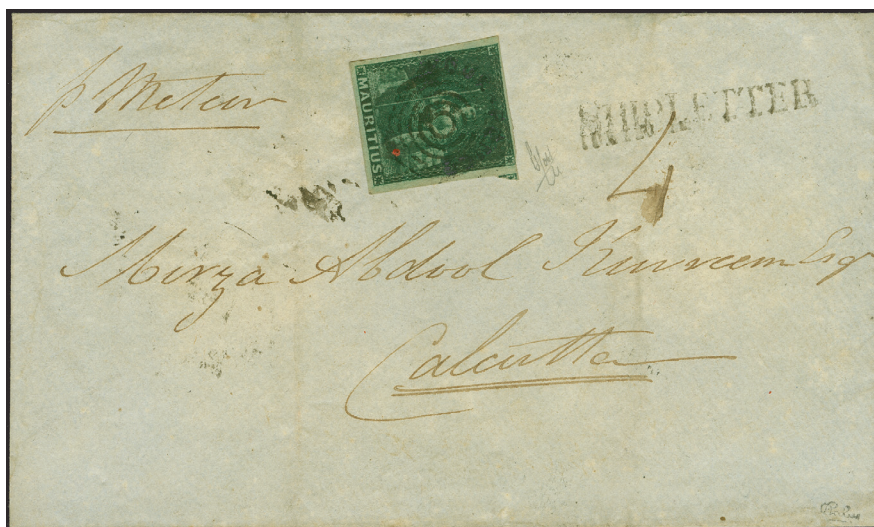 p Meteor
MAURITIUS
SHIP LETTER
4
Mirza Abdool Kurreem Esq
Calcutta